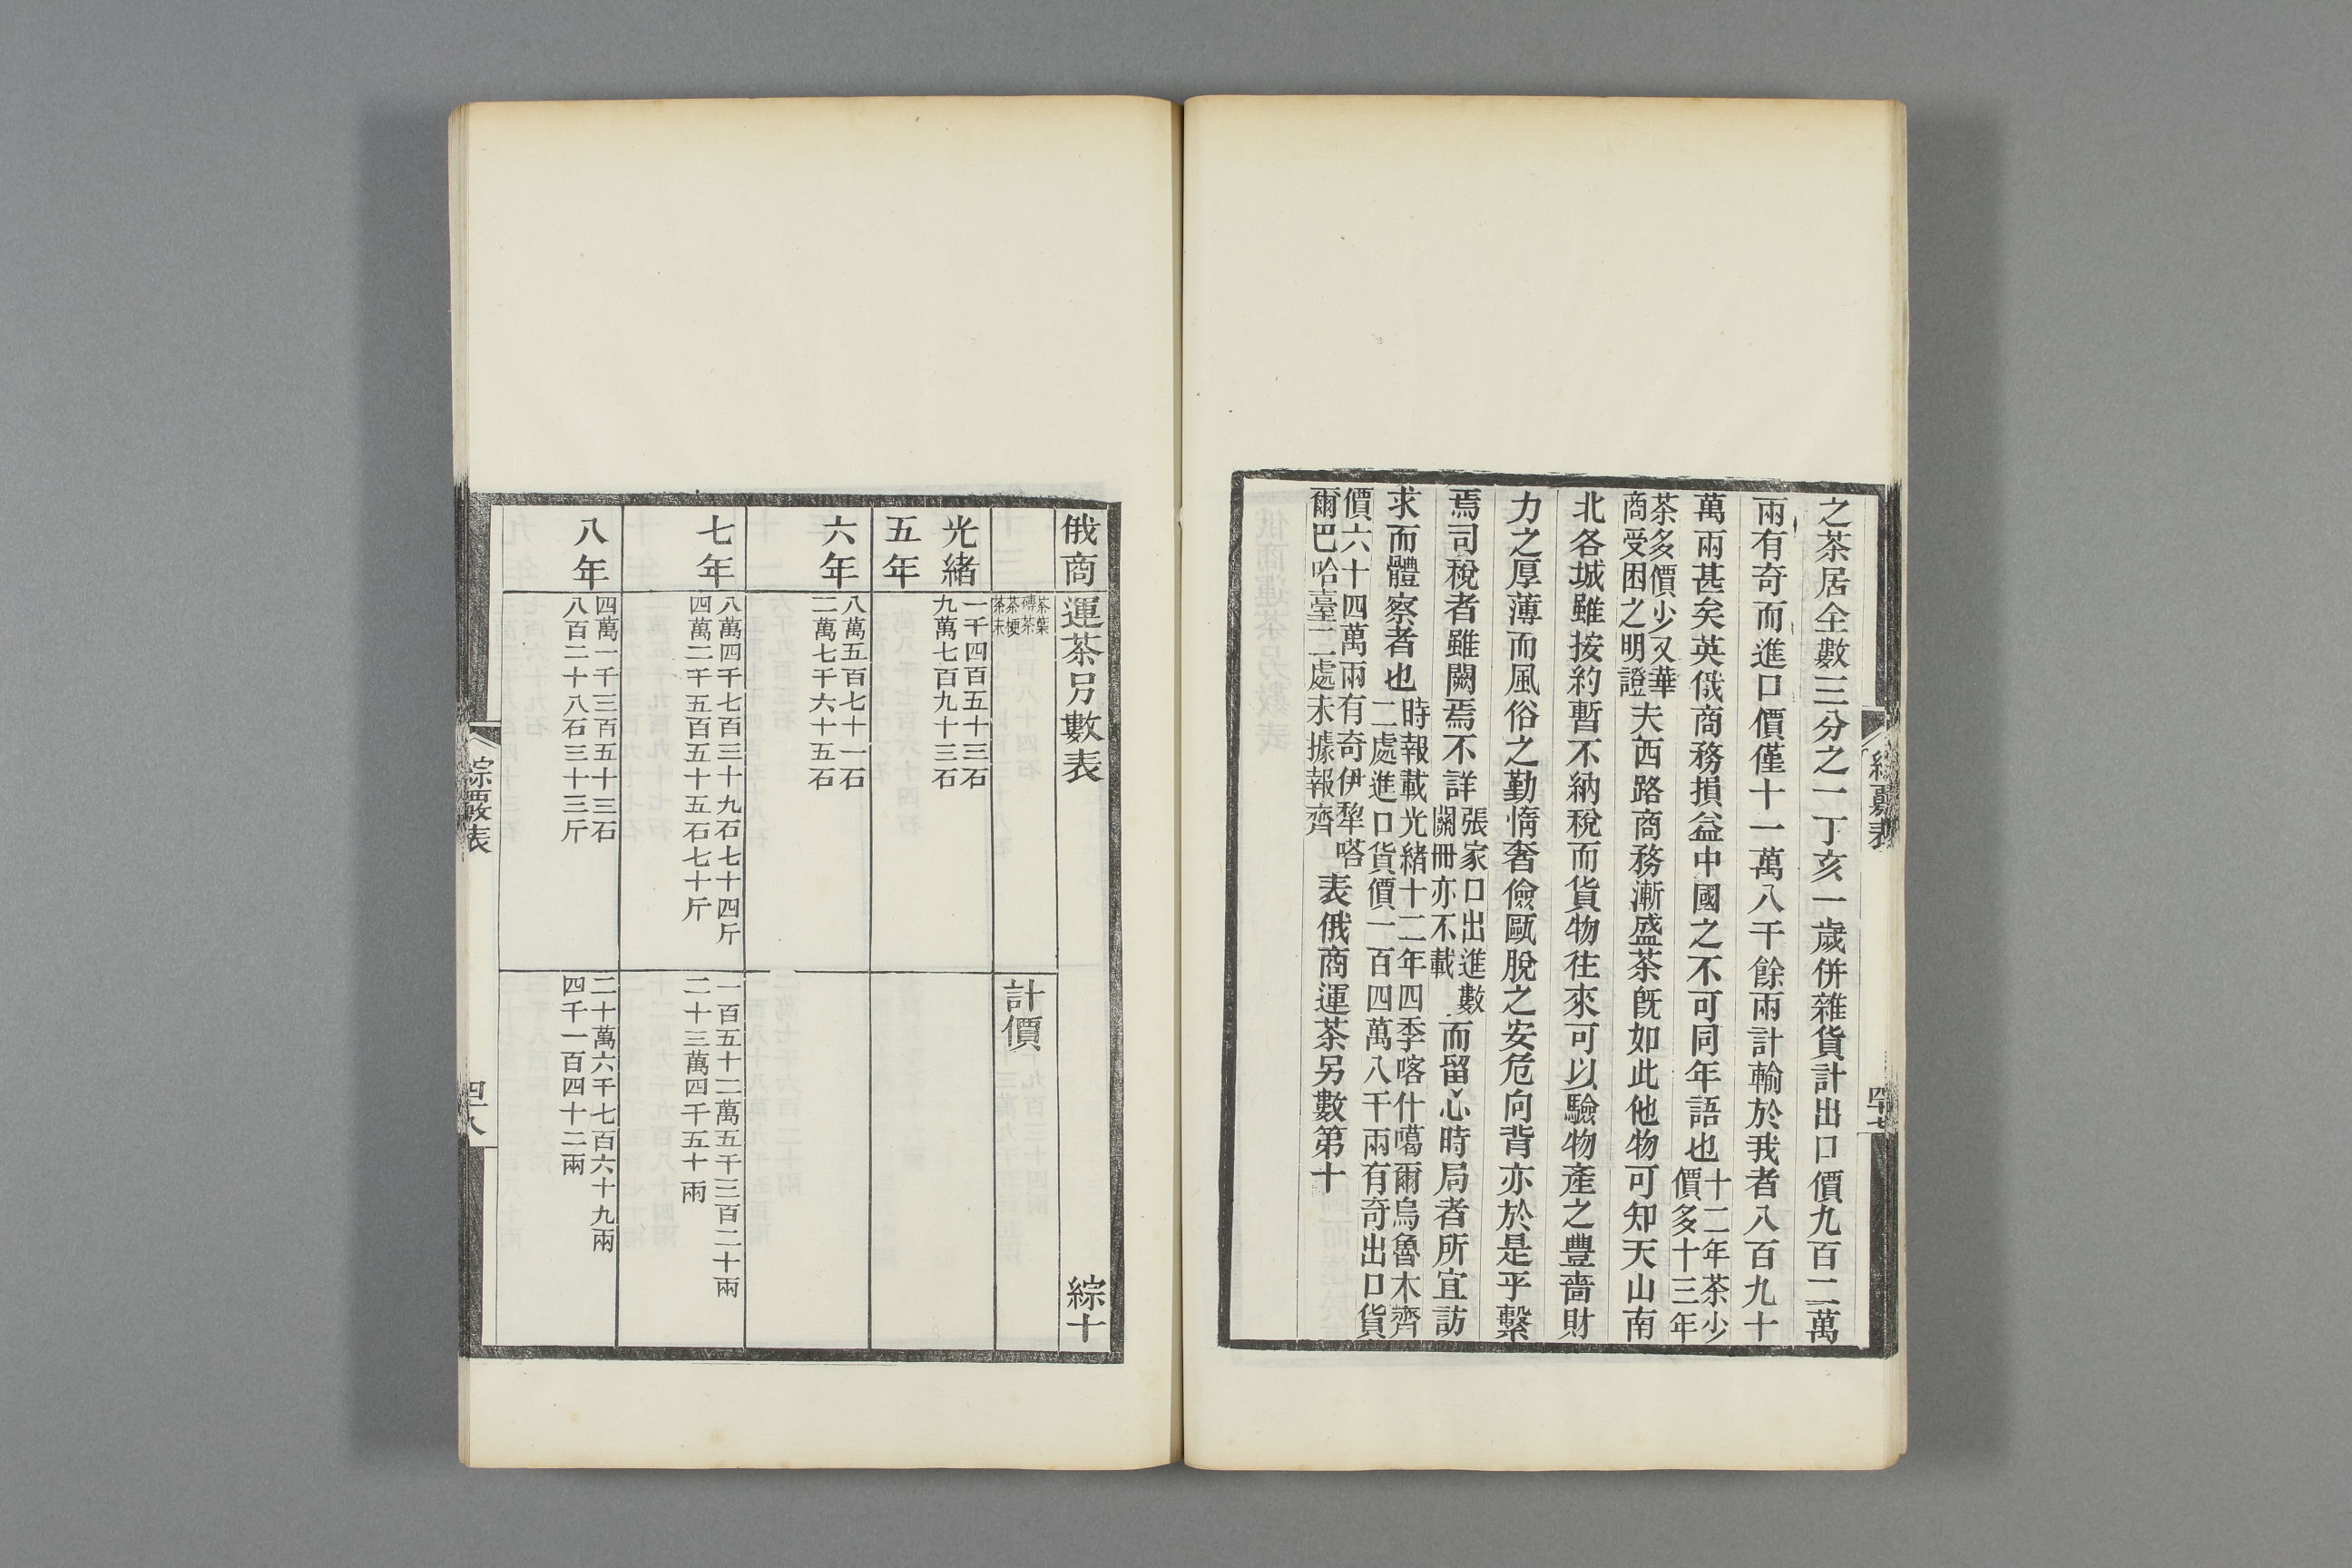 之茶居全數三分之一丁亥一歲併雜貨計出口價九百二萬
兩有奇而進口價僅十一萬八千餘兩計輸於我者八百九十
萬兩甚矣英俄商務損益中國之不可同年語也十二年茶少
價多十三年
茶多價少又華
商受困之明證夫西路商務漸盛茶旣如此他物可知天山南
北各城雖按約暫不納稅而貨物往來可以驗物產之豐嗇財
力之厚薄而風俗之勤惰奢儉甌脫之安危向背亦於是乎繫
焉司稅者雖闕焉不詳張家口出進數
關冊亦不載而留心時局者所宜訪
求而體察者也時報載光緒十二年四季喀什噶爾烏魯木齊
二處進口貨價一百四萬八千兩有奇出口貨
價六十四萬兩有奇伊犂喀
爾巴哈臺二處未據報齊表俄商運茶另數第十
綜覈表
四十七
俄商運茶另數表
綜十
茶葉
磚茶
茶梗
茶末
計價
光緒
五年
一千四百五十三石
九萬七百九十三石
六年
八萬五百七十一石
二萬七千六十五石
七年
八萬四千七百三十九石七十四斤
四萬二千五百五十五石七十斤
一百五十二萬五千三百二十兩
二十三萬四千五十兩
八年
四萬一千三百五十三石
八百二十八石三十三斤
二十萬六千七百六十九兩
四千一百四十二兩
綜覈表
四十八